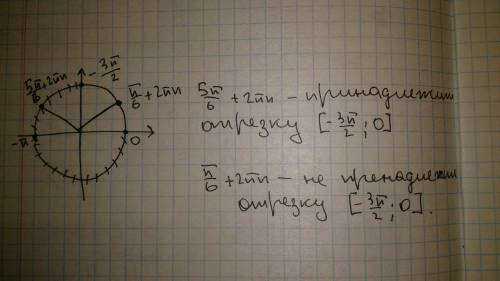 -3π/2
5π/6+2πn
π/6+2πn
-π
0
5π/6 + 2πn – принадлежит
отрезку [-3π/2; 0]
π/6 + 2πn – не пренадлежит
отрезку [-3π/2; 0].